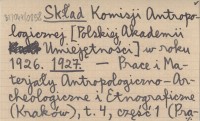 Skład Komisji Antropo-
logicznej [Polskiej Akademii
Umiejętności] w roku
1926. 1927. — Prace i Ma-
terjały Antropologiczno-Ar-
cheologiczne i Etnograficzne
(Kraków), t. 4, część 1 (Pra-